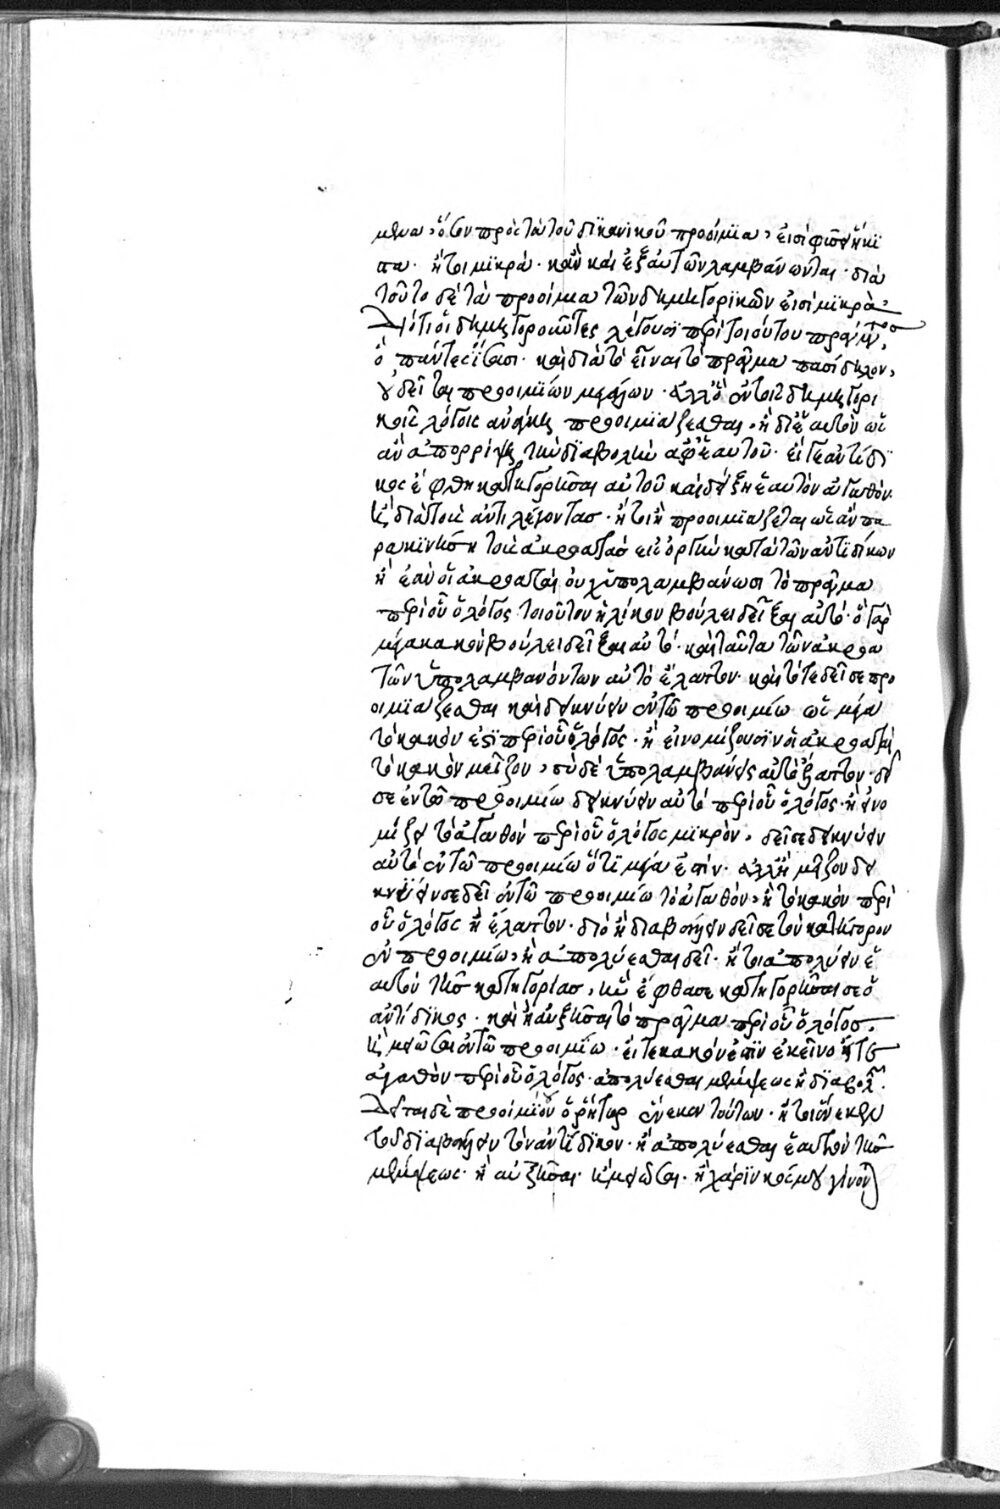 μενα, ὅσον πρὸς τὰ τοῦ δικανικοῦ προοίμια, εἰσὶ
πα. ἤτοι μικρὰ. κἂν καὶ ἐξ αὐτῶν λαμβάνωνται. διὰ
τοῦτο δὲ τὰ προοίμια τῶν δημηγορικῶν εἰσὶ μικρὰ.
Διότι οἱ δημηγοροῦντες λέγουσι περὶ τοιούτου πράγματος,
ὃ πάντες ἴσασι. καὶ διὰ τὸ εἶναι τὸ πρᾶγμα πᾶσι δῆλον,
οὐ δεῖται προοιμίων μεγάλων. ἀλλ' ὁ ἐν τοῖς δημηγορι
κοῖς λόγοις ἀνάγκη προοιμιάζεσθαι, ἢ δι' ἑαυτὸν ὡς
ἂν ἀπορρίψῃ τὴν διαβολὴν ἀφ' ἑαυτοῦ. εἴγε ἀντίδι
κος ἔφθη κατηγορῆσαι αὐτοῦ καὶ δείξῃ ἑαυτὸν ἀγαθόν.
ἢ διὰ τοὺς ἀντιλέγοντας. ἤτοι ἢ προοιμιάζεται ὡς ἂν πα
ρακινήσῃ τοὺς ἀκροατὰς εἰς ὀργὴν κατὰ τῶν ἀντιδίκων
ἢ ἐὰν οἱ ἀκροαταὶ οὐχ ὑπολαμβάνωσι τὸ πρᾶγμα
περὶ οὗ ὁ λόγος τοιοῦτον ἡλίκον βούλει δεῖξαι αὐτό. ἢ γὰρ
μέγα κακὸν βούλει δεῖξαι αὐτό. καὶ ταῦτα τῶν ἀκροα
τῶν ὑπολαμβανόντων αὐτὸ ἔλαττον. καὶ τότε δεῖ σε προ
οιμιάζεσθαι καὶ δεικνύειν ἐν τῷ προοιμίῳ ὡς μέγα
τὸ κακόν ἐστι περὶ οὗ ὁ λόγος. ἢ εἰ νομίζουσιν οἱ ἀκροαταὶ
τὸ κακὸν μεῖζον, σὺ δὲ ὑπολαμβάνεις αὐτὸ ἔλαττον. δεῖ
σε ἐν τῷ προοιμίῳ δεικνύειν αὐτὸ περὶ οὗ ὁ λόγος. ἢ ἐνο
μίζει τὸ ἀγαθὸν περὶ οὗ ὁ λόγος μικρὸν, δεῖ σε δεικνύειν
αὐτὸ ἐν τῷ προοιμίῳ ὅτι μέγα ἐστίν. ἀλλ' ἢ μεῖζον δει
κνύειν σε δεῖ ἐν τῷ προοιμίῳ τὸ ἀγαθὸν, ἢ τὸ κακὸν περὶ
οὗ ὁ λόγος ἢ ἔλαττον. διὸ ἢ διαβάλλειν δεῖ σε τὸν κατήγορον
ἐν προοιμίῳ, ἢ ἀπολύεσθαι δεῖ. ἤτοι ἀπολύειν ἑ
αυτὸν τῆς κατηγορίας, ἣν ἔφθασε κατηγορῆσαί σε ὁ
ἀντίδικος. καὶ ἢ αὐξῆσαι τὸ πρᾶγμα περὶ οὗ ὁ λόγος.
ἢ μειῶσαι ἐν τῷ προοιμίῳ. εἴτε κακόν ἐστιν ἐκεῖνο εἴτε
ἀγαθὸν περὶ οὗ ὁ λόγος. ἀπολύεσθαι μέμψεως ἢ διαβολῆς.
Δεῖται δὲ προοιμίου ὁ ῥήτωρ ἕνεκεν τούτων. ἤτοι ἕνεκεν
τοῦ διαβάλλειν τὸν ἀντίδικον. ἢ ἀπολύεσθαι ἑαυτὸν τῆς
μέμψεως. ἢ αὐξῆσαι. ἢ μειῶσαι. ἢ χάριν κόσμου γίνον